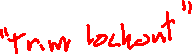 "Trim lockout"